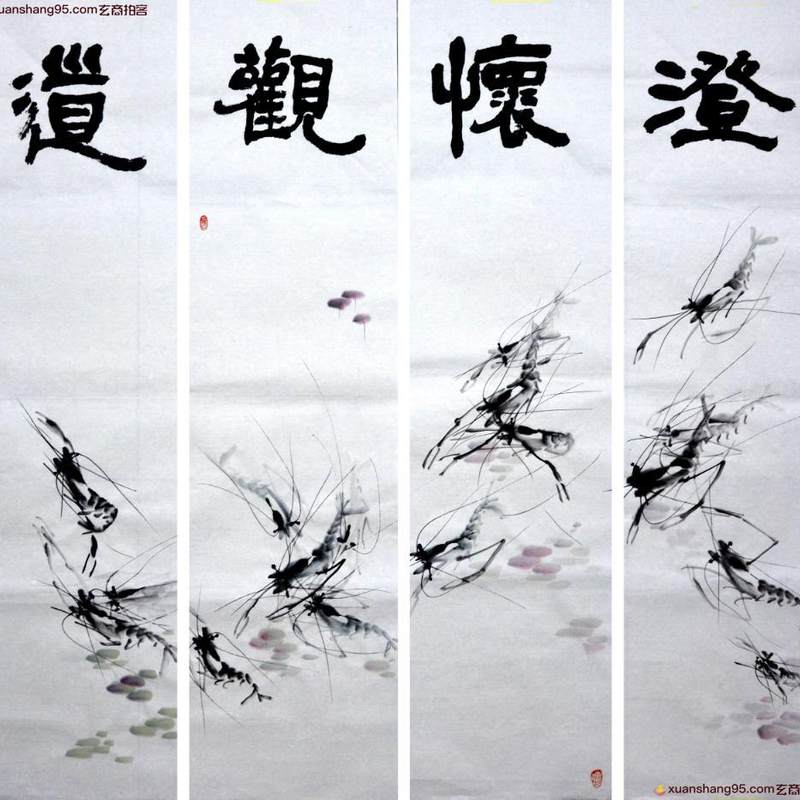 uanshang95.com玄商拍客
澄懷觀道
xuanshang95.com玄商